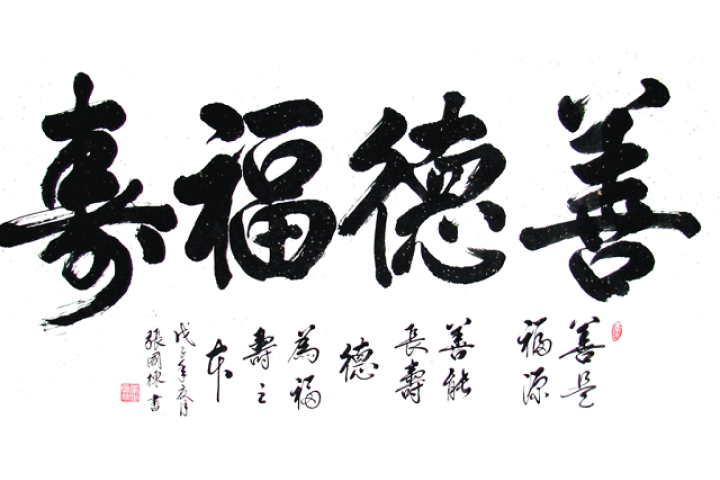 善德福寿
善是
福源
善能
長壽
德
為福
壽之
本
戊子年月
張國棟書